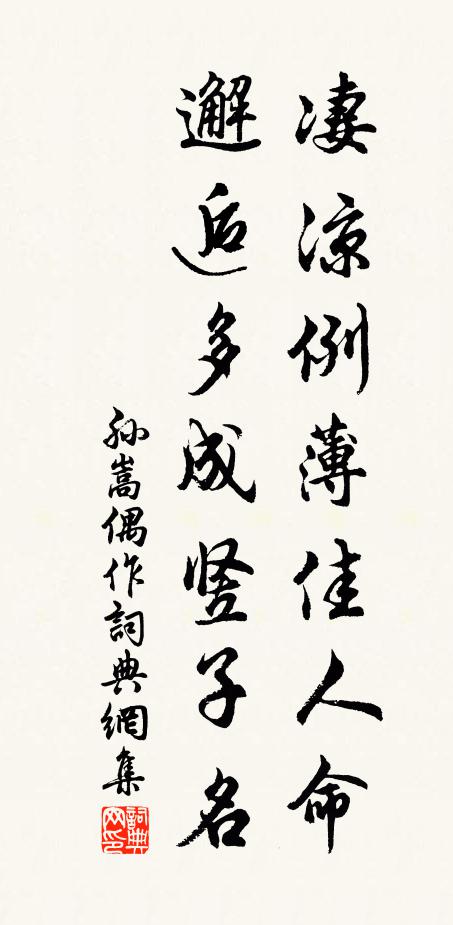 凄涼例薄佳人命
邂逅多成竖子名
孙嵩偶作詞典網集
詞典网印